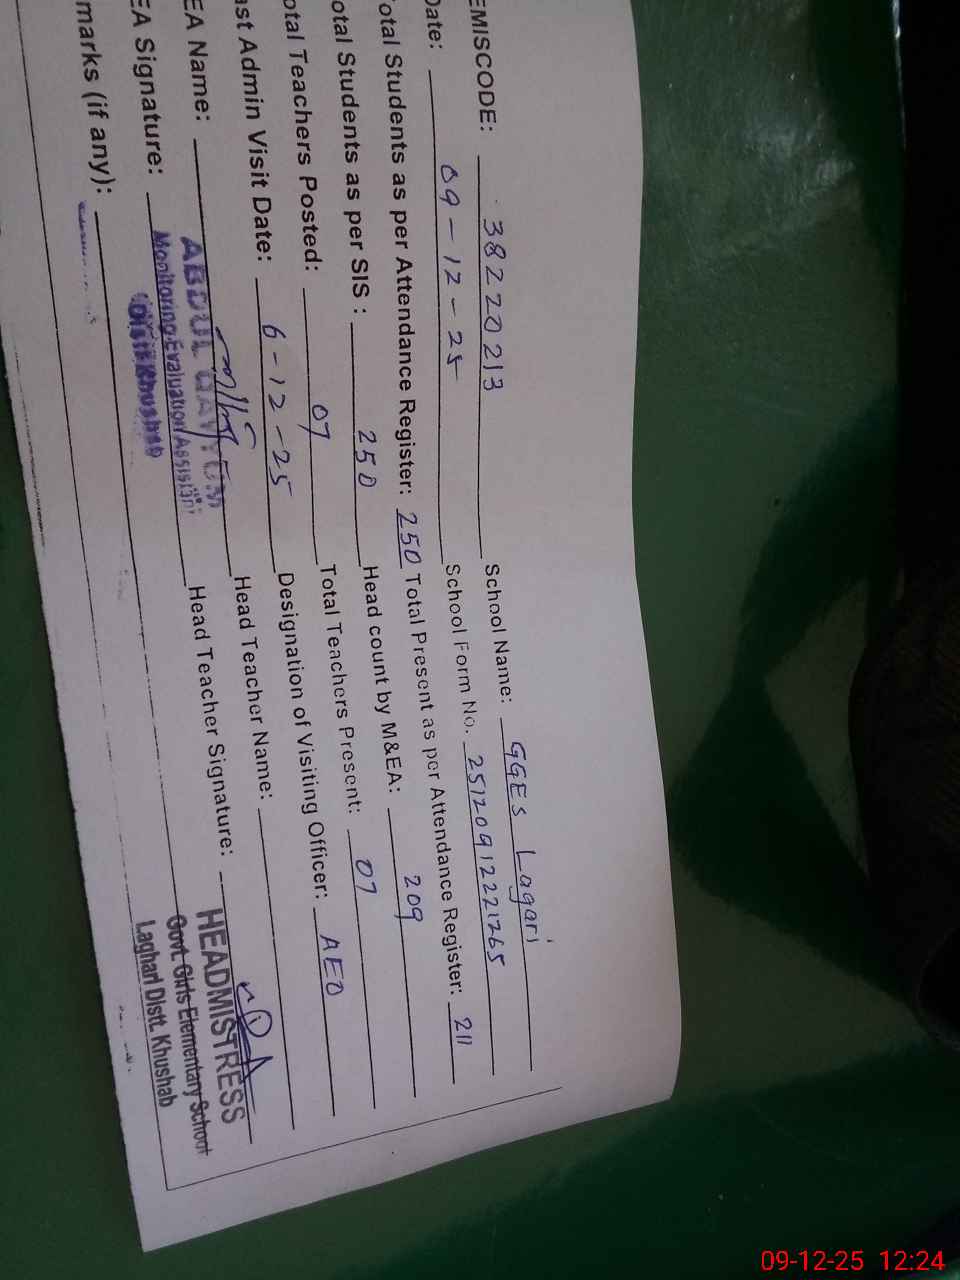 EMISCODE: 38220213 School Name: GGES Lagari
Date: 09-12-25 School Form No. 2512091221265
otal Students as per Attendance Register: 250 Total Present as per Attendance Register: 211
otal Students as per SIS : 250 Head count by M&EA: 209
otal Teachers Posted: 07 Total Teachers Present: 07
ast Admin Visit Date: 6-12-25 Designation of Visiting Officer: AEO
EA Name: ABDUL QAYYUM Head Teacher Name:
EA Signature: Monitoring Evaluation Assistant Head Teacher Signature: HEADMISTRESS
Distt Khushab Govt. Girls Elementary School
marks (if any): Laghari Distt. Khushab
09-12-25 12:24